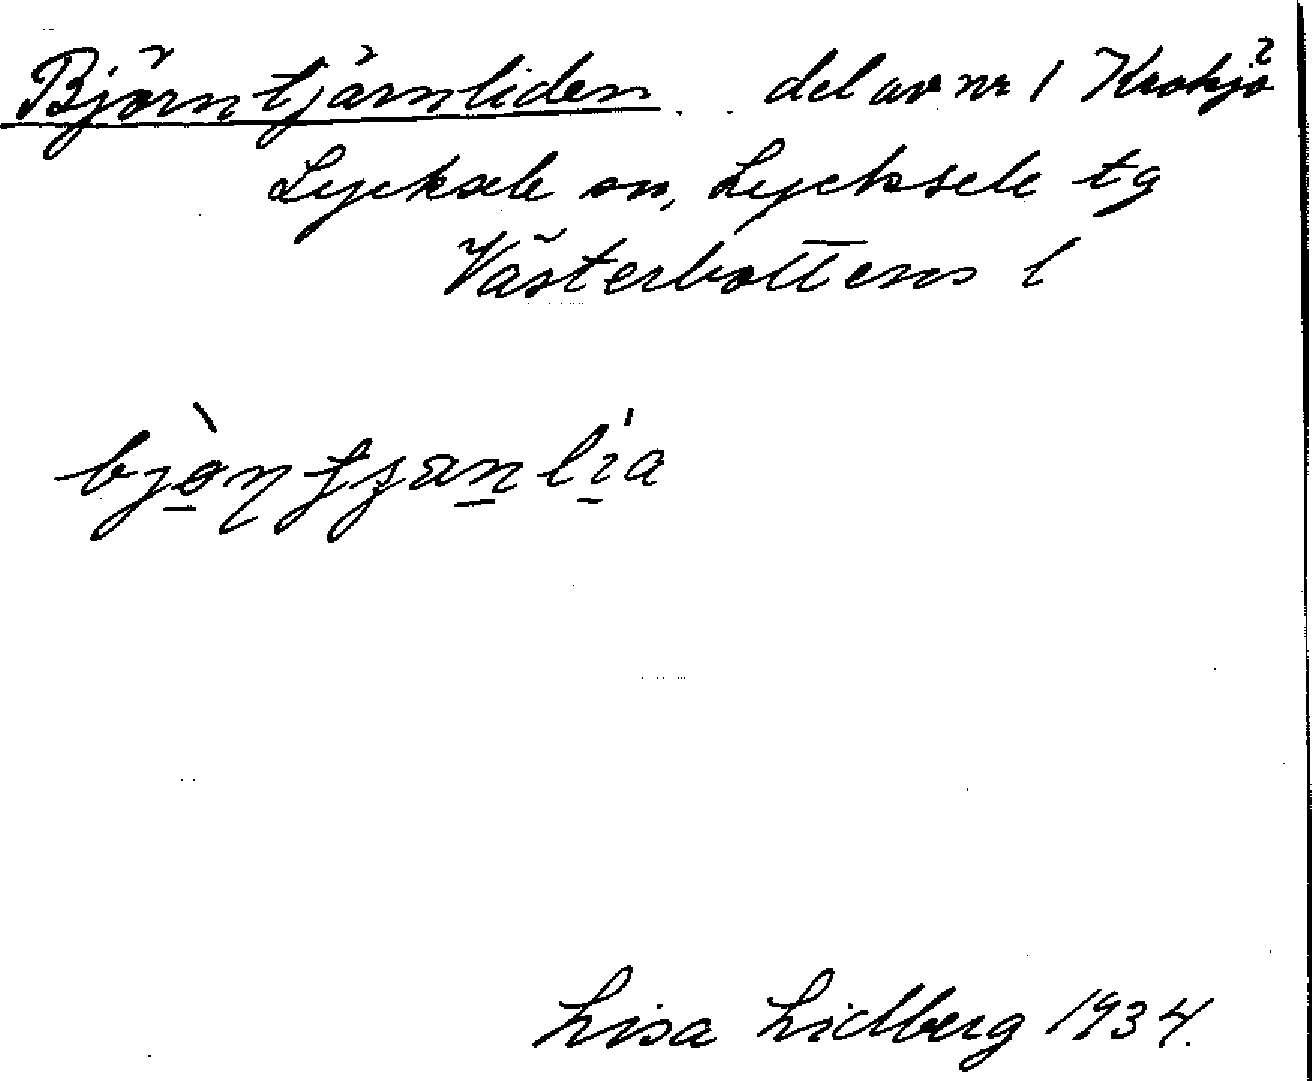 Björntjärnliden del av nr 1 Kroksjö
Lycksele sn, Lycksele tg
Västerbottens l
Lisa Lidberg 1934.